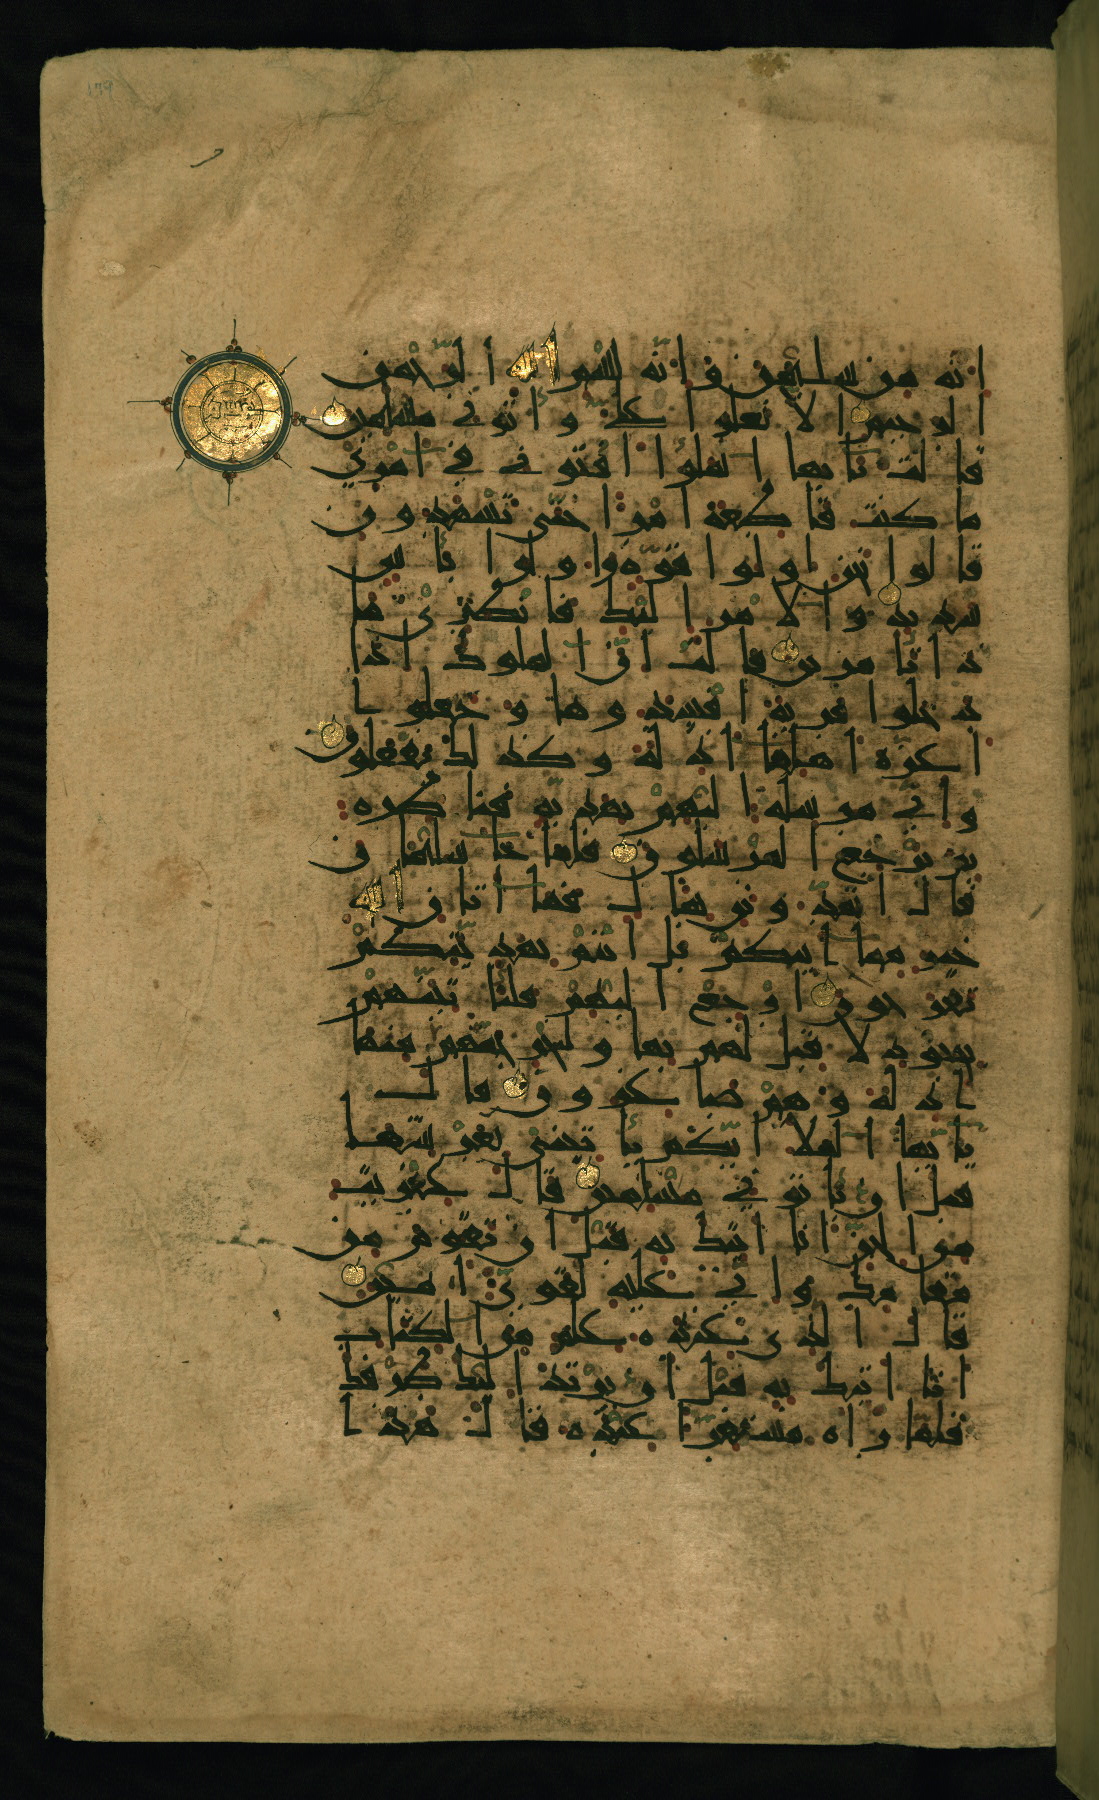 ١٧٩
انه من سليمن وانه بسم الله الرحمن
الرحيم الا تعلوا على واتونى مسلمين
قالت يايها الملوا افتونى فى امرى
ما كنت قاطعة امرا حتى تشهدون
قالوا نحن اولوا قوة واولوا باس
شديد والامر اليك فانظرى ما
ذا تامرين قالت ان الملوك اذا
دخلوا قرية افسدوها وجعلوا
اعزة اهلها اذلة وكذلك يفعلون
وانى مرسلة اليهم بهدية فناظرة
بم يرجع المرسلون فلما جا سليمان
قال اتمدونن بمال فما اتان الله
خير مما اتيكم بل انتم بهديتكم
تفرحون ارجع اليهم فلناتينهم
بجنود لا قبل لهم بها ولنخرجنهم منها
اذلة وهم صاغرون قال
يايها الملا ايكم ياتينى بعرشها
قبل ان ياتونى مسلمين قال عفريت
من الجن انا اتيك به قبل ان تقوم من
مقامك وانى عليه لقوى امين
قال الذى عنده علم من الكتاب
انا اتيك به قبل ان يرتد اليك طرفك
فلما راه مستقرا عنده قال هذا